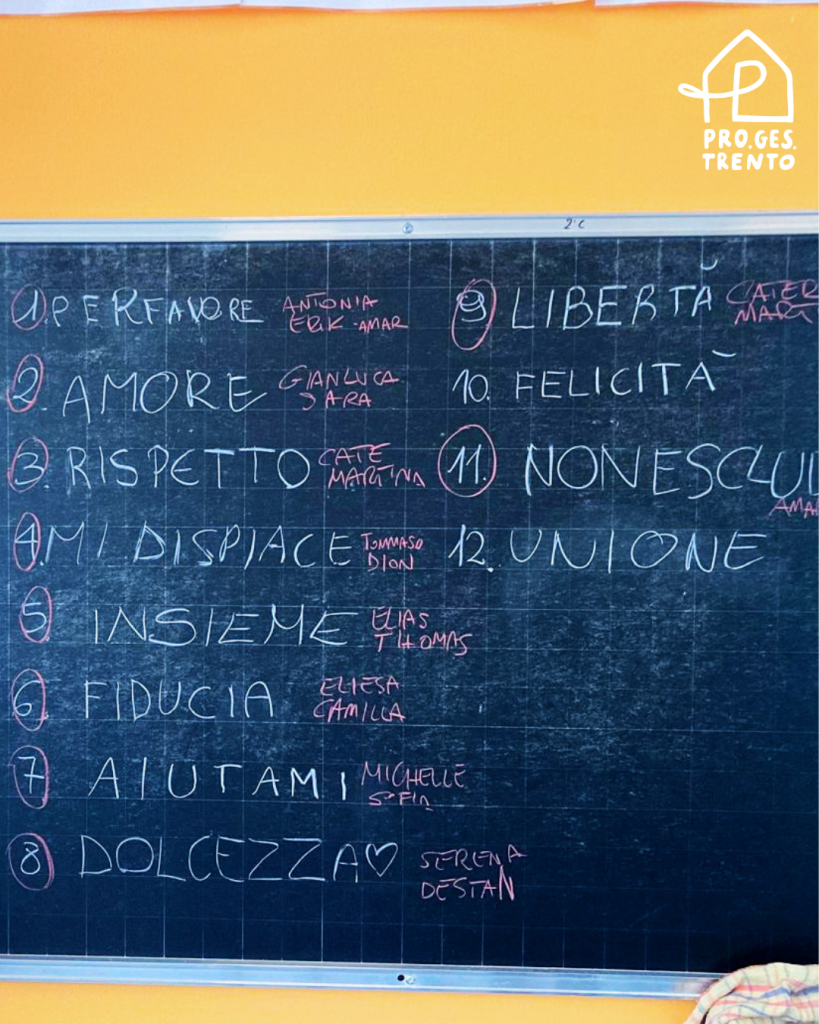 PRO.GES.
TRENTO
2°C
1. PERFAVORE ANTONIA
ERIK - AMAR
2. AMORE GIANLUCA
SARA
3. RISPETTO CATE
MARTINA
4. MI DISPIACE TOMMASO
DION
5 INSIEME ELIAS
THOMAS
6. FIDUCIA ELIESA
CAMILLA
7 AIUTAMI MICHELLE
SOFIA
8 DOLCEZZA♡ SERENA
DESTAN
9 LIBERTĂ CATER
MART
10. FELICITÀ
11. NON ESCLU
AMA
12. UNIONE